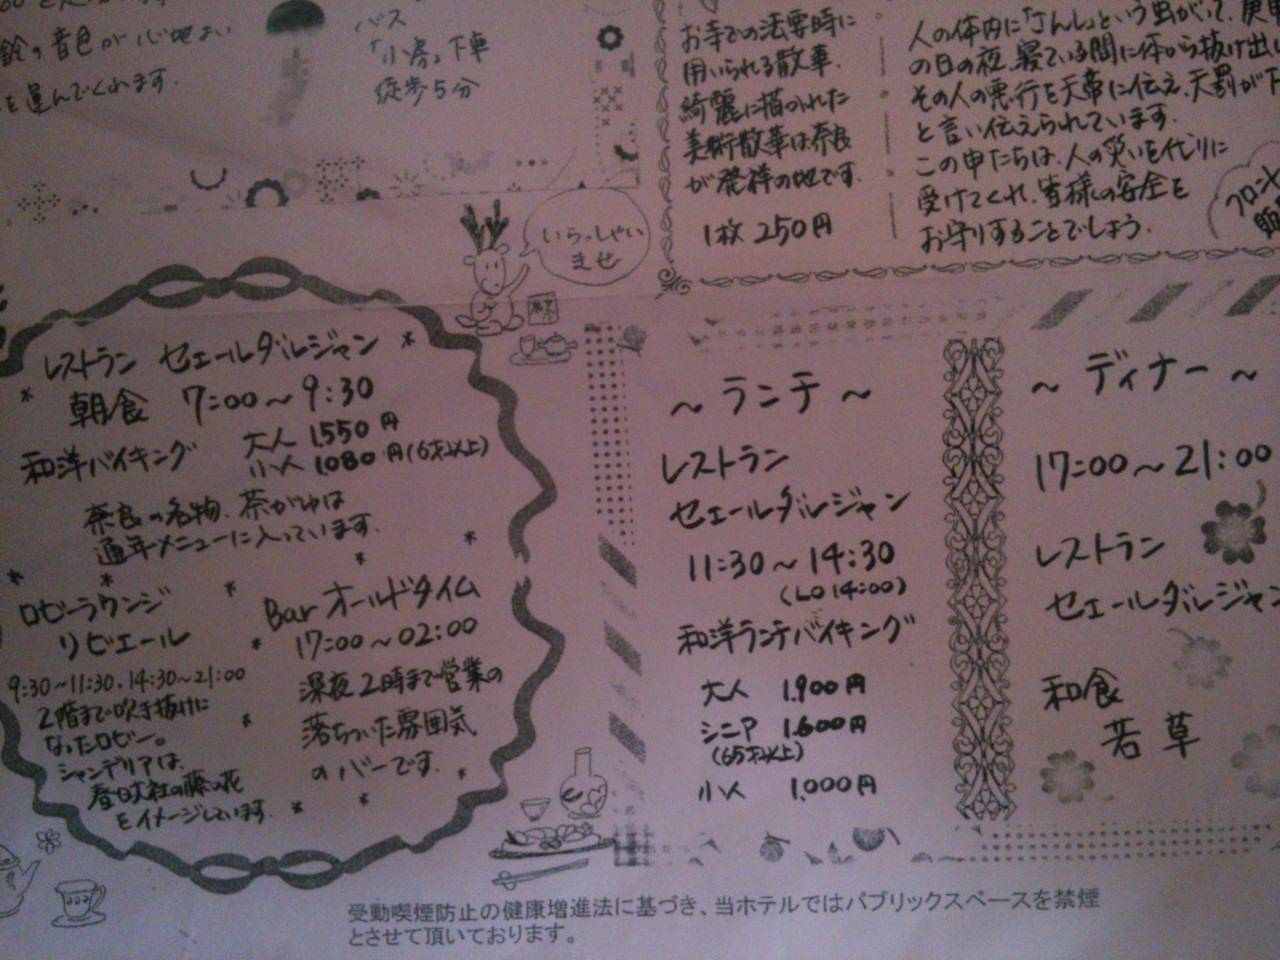 鈴の音色が心地よい
を運んでくれます。
バス
「小房」下車
徒歩5分
お寺での法要時に
用いられる散華。
綺麗に描かれた
美術散華は奈良
が発祥の地です。
1枚 250円
人の体内に「さんし」という虫がいて、庚申
の日の夜、寝ている間に体から抜け出し
その人の悪行を天帝に伝え、天罰が下
と言い伝えられています。
この申たちは、人の災いを代りに
受けてくれ、皆様の安全を
お守りすることでしょう。
フロントに
いらっしゃい
ませ
レストラン セェールダルジャン
朝食 7:00～9:30
和洋バイキング 大人 1550円
小人 1080円(6才以上)
奈良の名物、茶がゆは
通年メニューに入っています。
ロビーラウンジ
リビエール
9:30～11:30、14:30～21:00
2階まで吹き抜けに
なったロビー。
シャンデリアは、
春日大社の藤の花
をイメージしています。
Bar オールドタイム
17:00～02:00
深夜2時まで営業の
落ちついた雰囲気
のバーです。
～ランチ～
レストラン
セェールダルジャン
11:30～14:30
(LO 14:00)
和洋ランチバイキング
大人 1.900円
シニア 1.600円
(65才以上)
小人 1.000円
～ディナー～
17:00～21:00
レストラン
セェールダルジャン
和食
若草
受動喫煙防止の健康増進法に基づき、当ホテルではパブリックスペースを禁煙
とさせて頂いております。